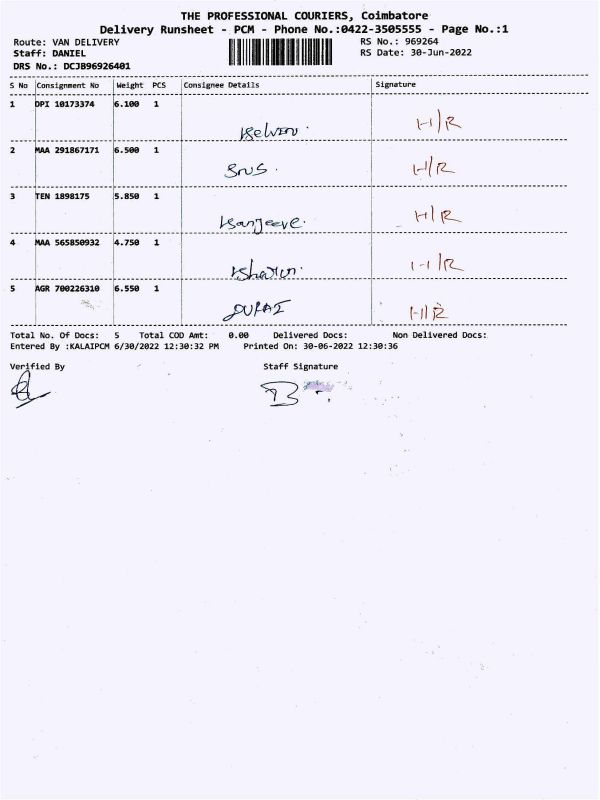 THE PROFESSIONAL COURIERS, Coimbatore
Delivery Runsheet - PCM - Phone No.:0422-3505555 - Page No.:1
Route: VAN DELIVERY RS No.: 969264
Staff: DANIEL RS Date: 30-Jun-2022
DRS No.: DCJB96926401
S No Consignment No Weight PCS Consignee Details Signature
1 DPI 10173374 6.100 1
Kelvin. H/R
2 MAA 291867171 6.500 1
H/R
3 TEN 1898175 5.850 1
Sanjeeve. H/R
4 MAA 565850932 4.750 1
H/R
5 AGR 700226310 6.550 1
DURAI H/R
Total No. Of Docs: 5 Total COD Amt: 0.00 Delivered Docs: Non Delivered Docs:
Entered By :KALAIPCM 6/30/2022 12:30:32 PM Printed On: 30-06-2022 12:30:36
Verified By Staff Signature